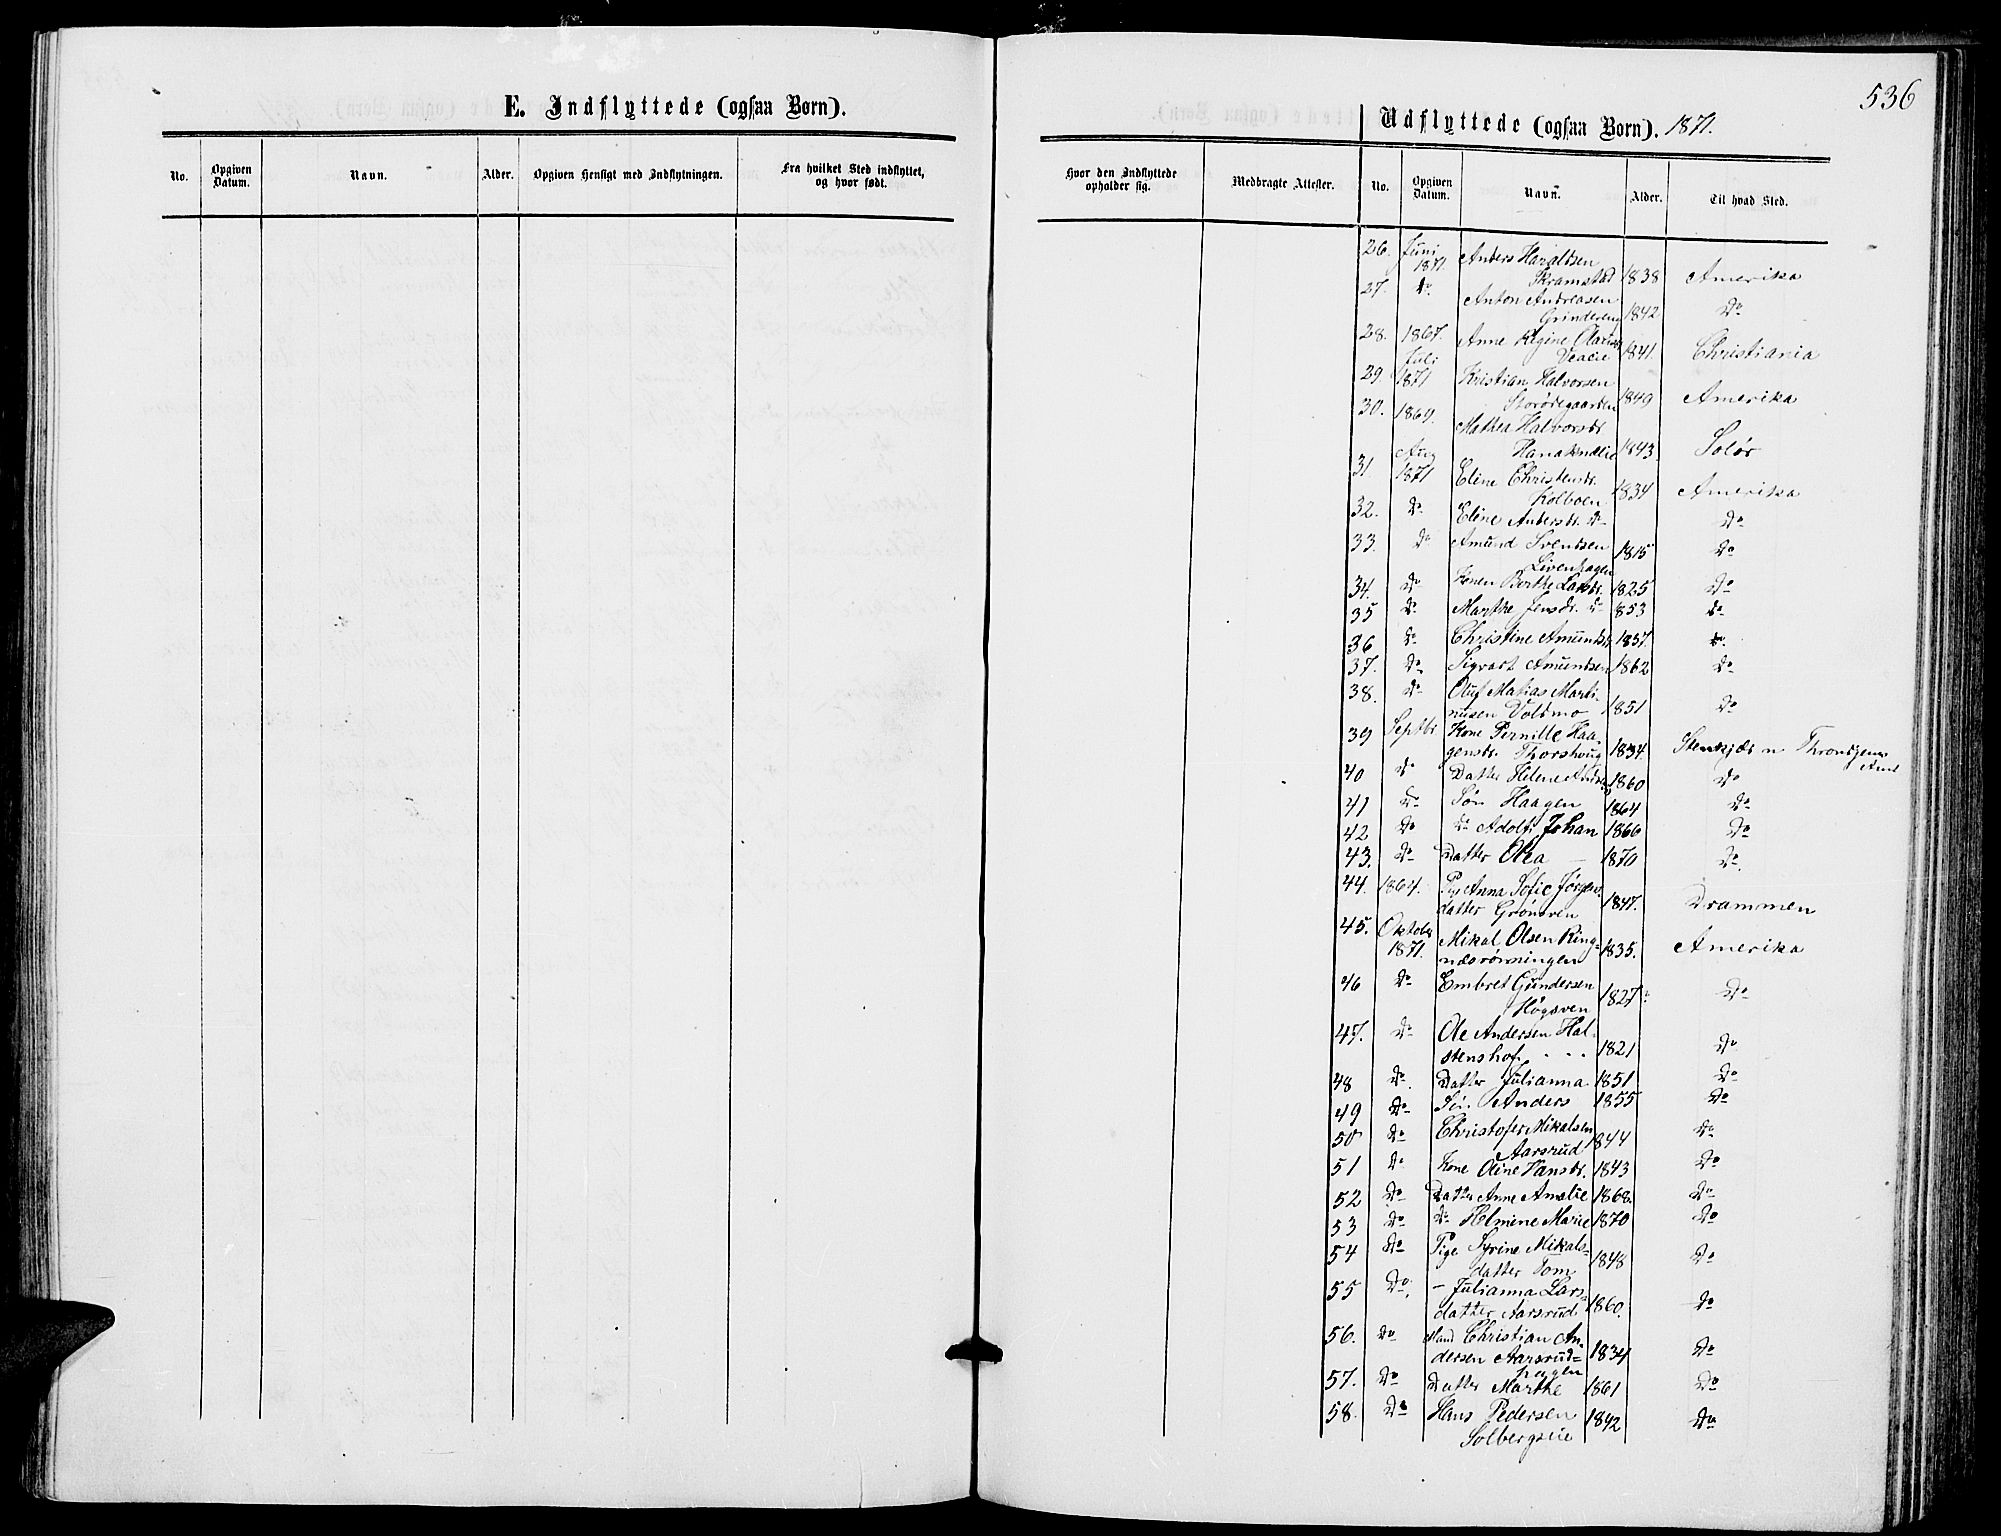 536
E. Indflyttede (ogsaa Børn).
No. Opgiven Datum. Navn. Alder. Opgiven Hensigt med Indflytningen. Fra hvilket Sted indflyttet, og hvor født.
Udflyttede (ogsaa Børn). 1871.
Hvor den Indflyttede opholder sig. Medbragte Attester. No. Opgiven Datum. Navn. Alder. Til hvad Sted.
26. Juni 1871. Anders Haraldsen
Skramstad 1838 Amerika
27. do. Anton Andreasen
Grindereng 1842 Do
28. 1867. Anne Regine Olausdr
1841. Christiania
29. Juli 1871 Kristian Halvorsen
1849 Amerika
30. 1869. Mathea Halvorsdr.
1843. Solør
31 Aug 1871 Eline Christensdr.
Kolboen 1834 Amerika
32. Do Eline Andersdr. Do Do
33. Do Amund Svendsen
1815 Do
34. Do Konen Berthe Larsdr. 1825 Do
35 Do Marthe Jensdr. Do 853 Do
36 Do Christine Amundsdr. 1857. Do
37. Do Sigvart Amundsen 1862 Do
38. Do Oluf Matias Marti-
nusen Voldmo 1851 Do
39 Septbr Kone Pernille Haa-
gensdr. Thorshoug 1834. Stenkjær n Throndjems Amt
40 Do Datter Helene 1860 Do
41 Do Søn Haagen 1864 Do
42 Do Do Adolf Johan 1866 Do
43. Do Datter Olea — 1870 Do.
44. 1864. Pige Anna Sofie Jørgens-
datter Grønsven 1847. Drammen
45. Oktober 1871. Mikal Olsen Ring-
nesrønningen 1835. Amerika
46 Do Embret Gundersen
Høgsven 1827. Do
47. Do Ole Andersen Hal-
stenshof 1821 Do
48 Do. Datter Julianna 1851 Do
49 Do Søn Anders 1855 Do
50 Do Christofer Mikalsen
Aarsrud 1844 Do
51 Do Kone Oline Hansdr. 1843 Do
52 Do Datter Anne Amalie 1868. Do
53 Do Do Helmine Marie 1870 Do
54 Do Pige Syrine Mikals-
datter Tom 1848 Do
55 Do. — Julianna Lars-
datter Aarsrud 1860. Do
56. Do Mand Christian An-
dersen Aarsrud-
hagen 1834 Do
57. Do Datter Marthe 1861 Do
58. Do Hans Pedersen
Solbergseie 1842 Do